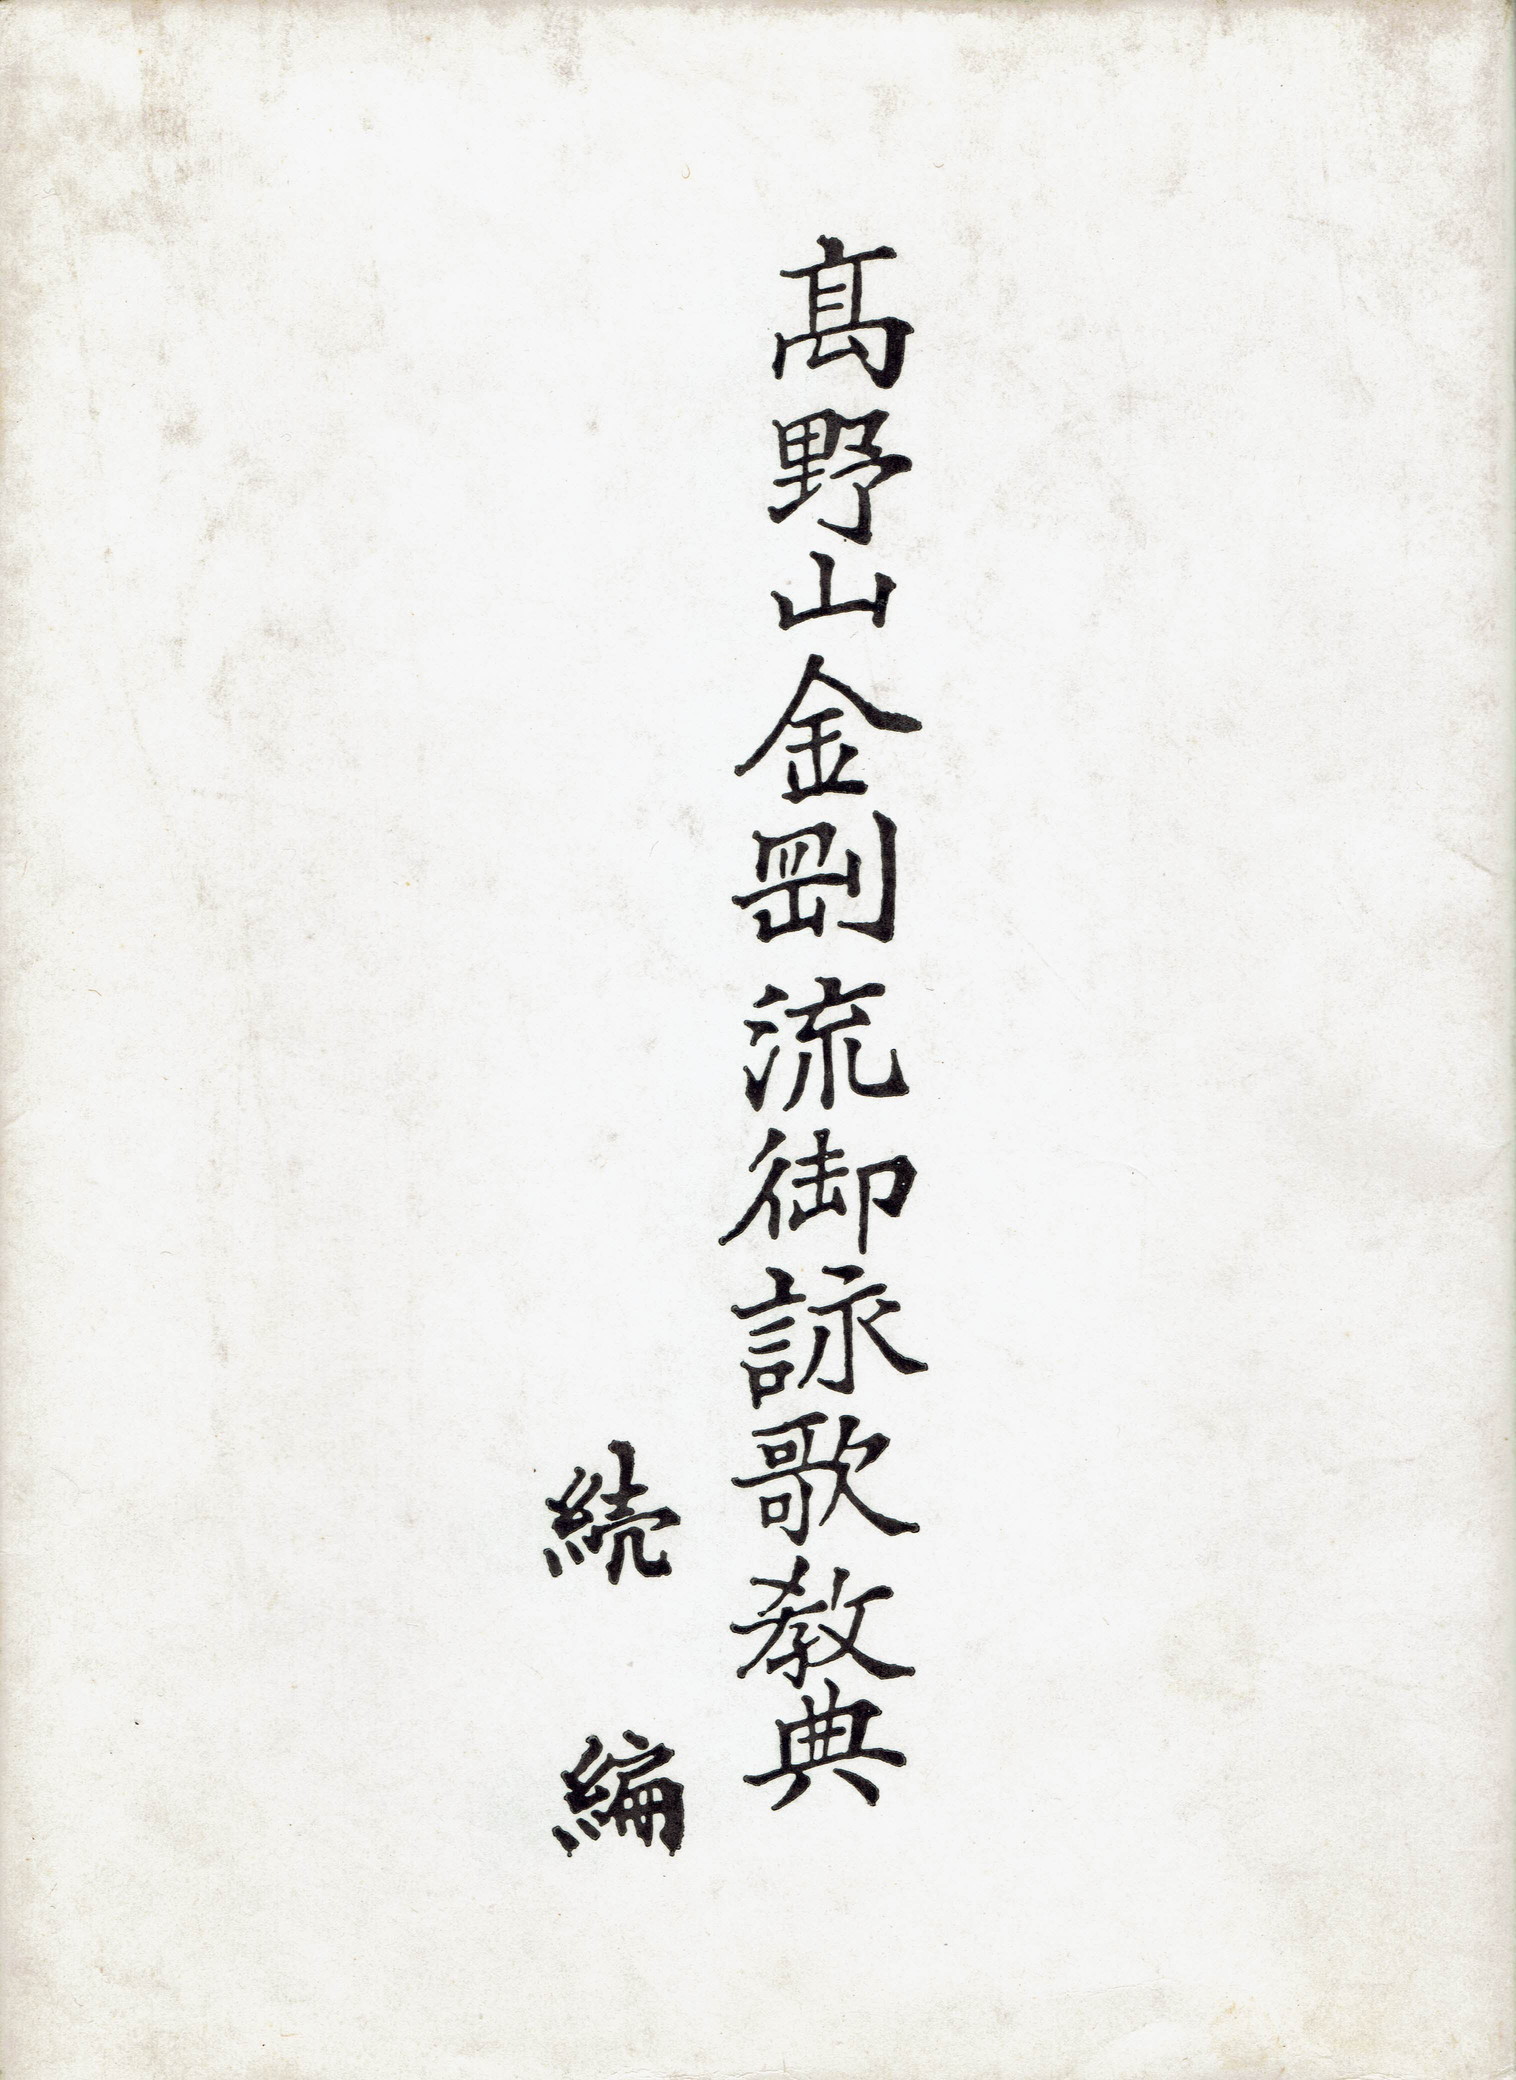 髙野山金剛流御詠歌教典
続編